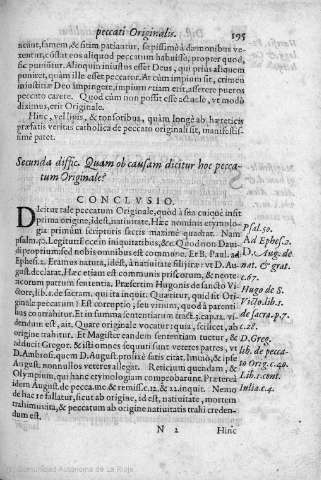 peccati Originalis. 195
neant, famem, & sitim patiantur, sæpissimè à dæmonibus vexentur,
constat eos aliquod peccatum habuisse, propter quod,
sic puniuntur. Alioquin iniustus esset Deus, qui prius aliquem
puniret, quàm ille esset peccator. At cùm impium sit, crimen
iniustitiæ Deo impingere, impium etiam erit, asserere pueros
peccato carere. Quod cùm non possit esse actuale, vt modò
diximus, erit Originale.
Hinc, vel lippis, & tonsoribus, quàm longè ab hæreticis
præfatis veritas catholica de peccato originali sit, manifestissimè
patet.
Secunda diffic. Quam ob causam dicitur hoc peccatum
Originale?
CONCLVSIO.
Dicitur tale peccatum Originale, quod à sua cuique insit
prima origine, idest, natiuitate. Hæc nominis etymologia
primùm scripturis sacris maximè quadrat. Nam
psalm. 50. Legitur: Ecce in iniquitatibus, &c. Quod non Dauidi
proprium sed nobis omnibus est commune. Et B. Paul. ad
Ephes. 2. Eramus natura, idest, à natiuitate filij iræ: vt D. August.
declarat. Hæc etiam est communis priscorum, & neotericorum
patrum sententia. Præsertim Hugonis de sancto Victore,
lib. 1. de sacram. qui ita inquit: Quæritur, quid sit Originale
peccatum? Est corruptio, seu vitium, quod à parentibus
contrahitur. Et in summa sententiarum tract. 3. cap. 12. videndum
est, ait. Quare originale vocatur: quia, scilicet, ab
origine trahitur. Et Magister eandem sententiam tuetur, &
adducit Gregor. & istis omnes sequuti sunt veteres patres, vt
D. Ambros. quem D. August. profitè satis citat. Immò, & ipse
August. nonnullos veteres allegat. Reticium quendam, &
Olympium, qui hanc etymologiam comprobarunt. Præterea
idem August. de pecca. me & remiss. c. 12. & 12. inquit. Nemo
de hac re fallatur, sicut ab origine, id est, natiuitate, mortem
trahimus ita, & peccatum ab origine natiuitatis trahi credendum
est.
Psal. 50.
Ad Ephes. 2.
D. Aug. de
nat. & grat.
c. 67.
Hugo de S.
Victo. lib. 1.
de sacra. p. 7.
c. 28.
D. Greg.
lib. de pecca-
to Orig. c. 40.
Lib. 1. cont.
Iulia. c. 4.
N 2 Hinc
Comunidad Autónoma de La Rioja